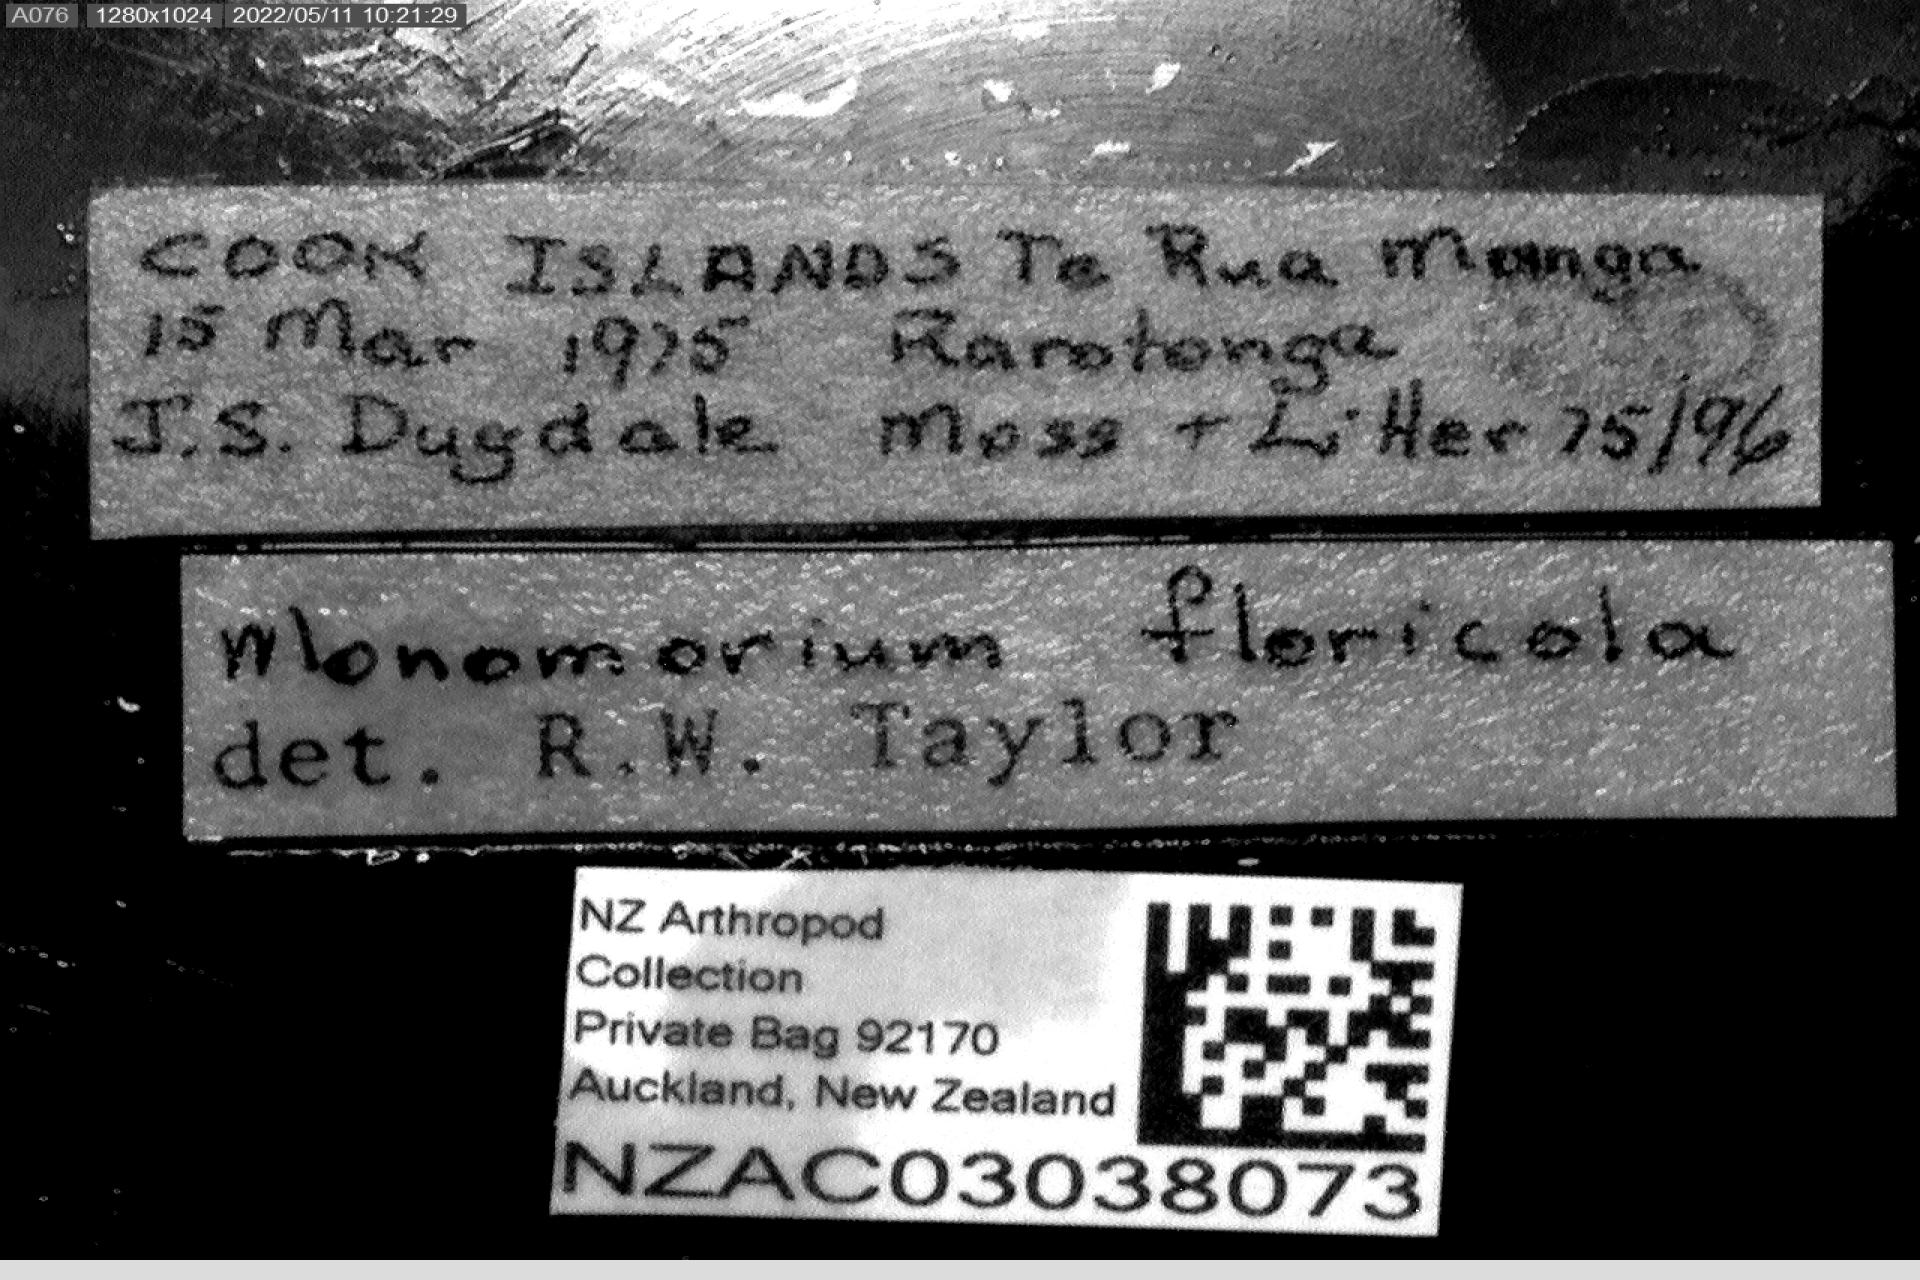 A076 1280x1024 2022/05/11 10:21:29
COOK ISLANDS Te Rua Manga
15 Mar 1975 Rarotonga
J.S. Dugdale Moss + Litter 75/96
Monomorium floricola
det. R.W. Taylor
NZ Arthropod
Collection
Private Bag 92170
Auckland, New Zealand
NZAC03038073